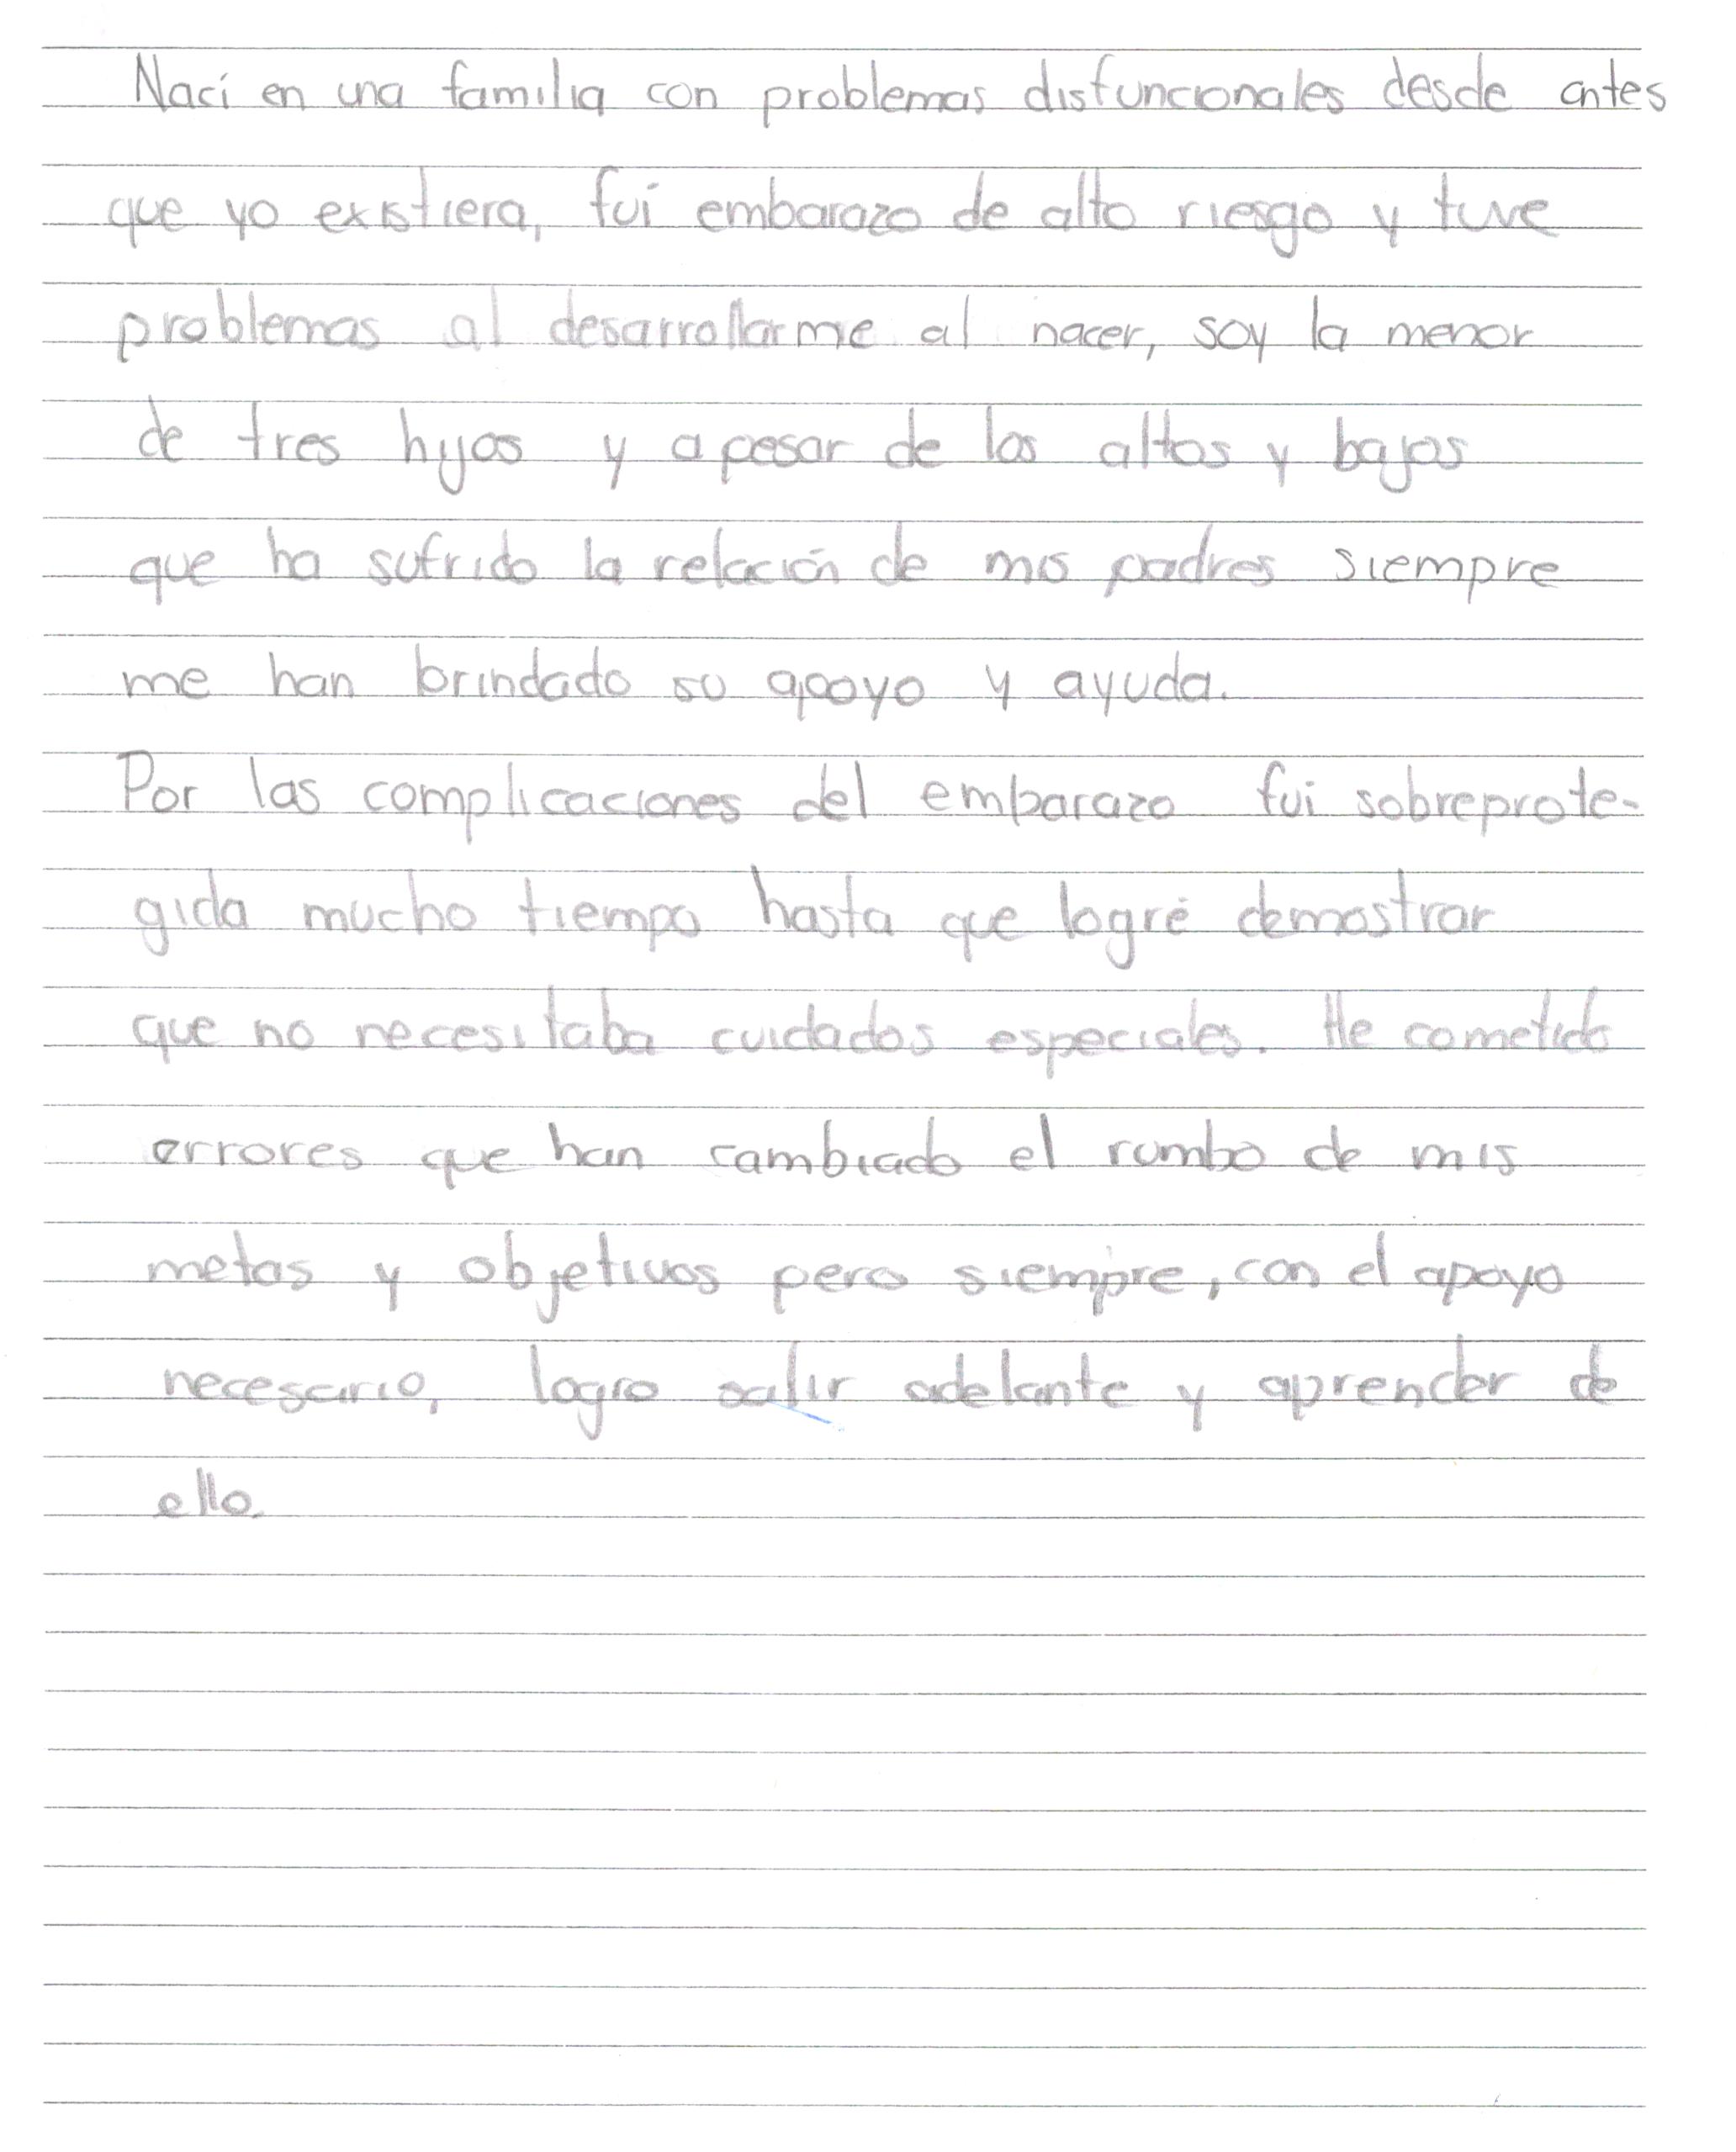 Nací en una familia con problemas disfuncionales desde antes
que yo existiera, fui embarazo de alto riesgo y tuve
problemas al desarrollarme al nacer, soy la menor
de tres hijos y apesar de los altos y bajos
que ha sufrido la relación de mis padres siempre
me han brindado su apoyo y ayuda.
Por las complicaciones del embarazo fui sobreprote-
gida mucho tiempo hasta que logré demostrar
que no necesitaba cuidados especiales. He cometido
errores que han cambiado el rumbo de mis
metas y objetivos pero siempre, con el apoyo
necesario, logro salir adelante y aprender de
ello.